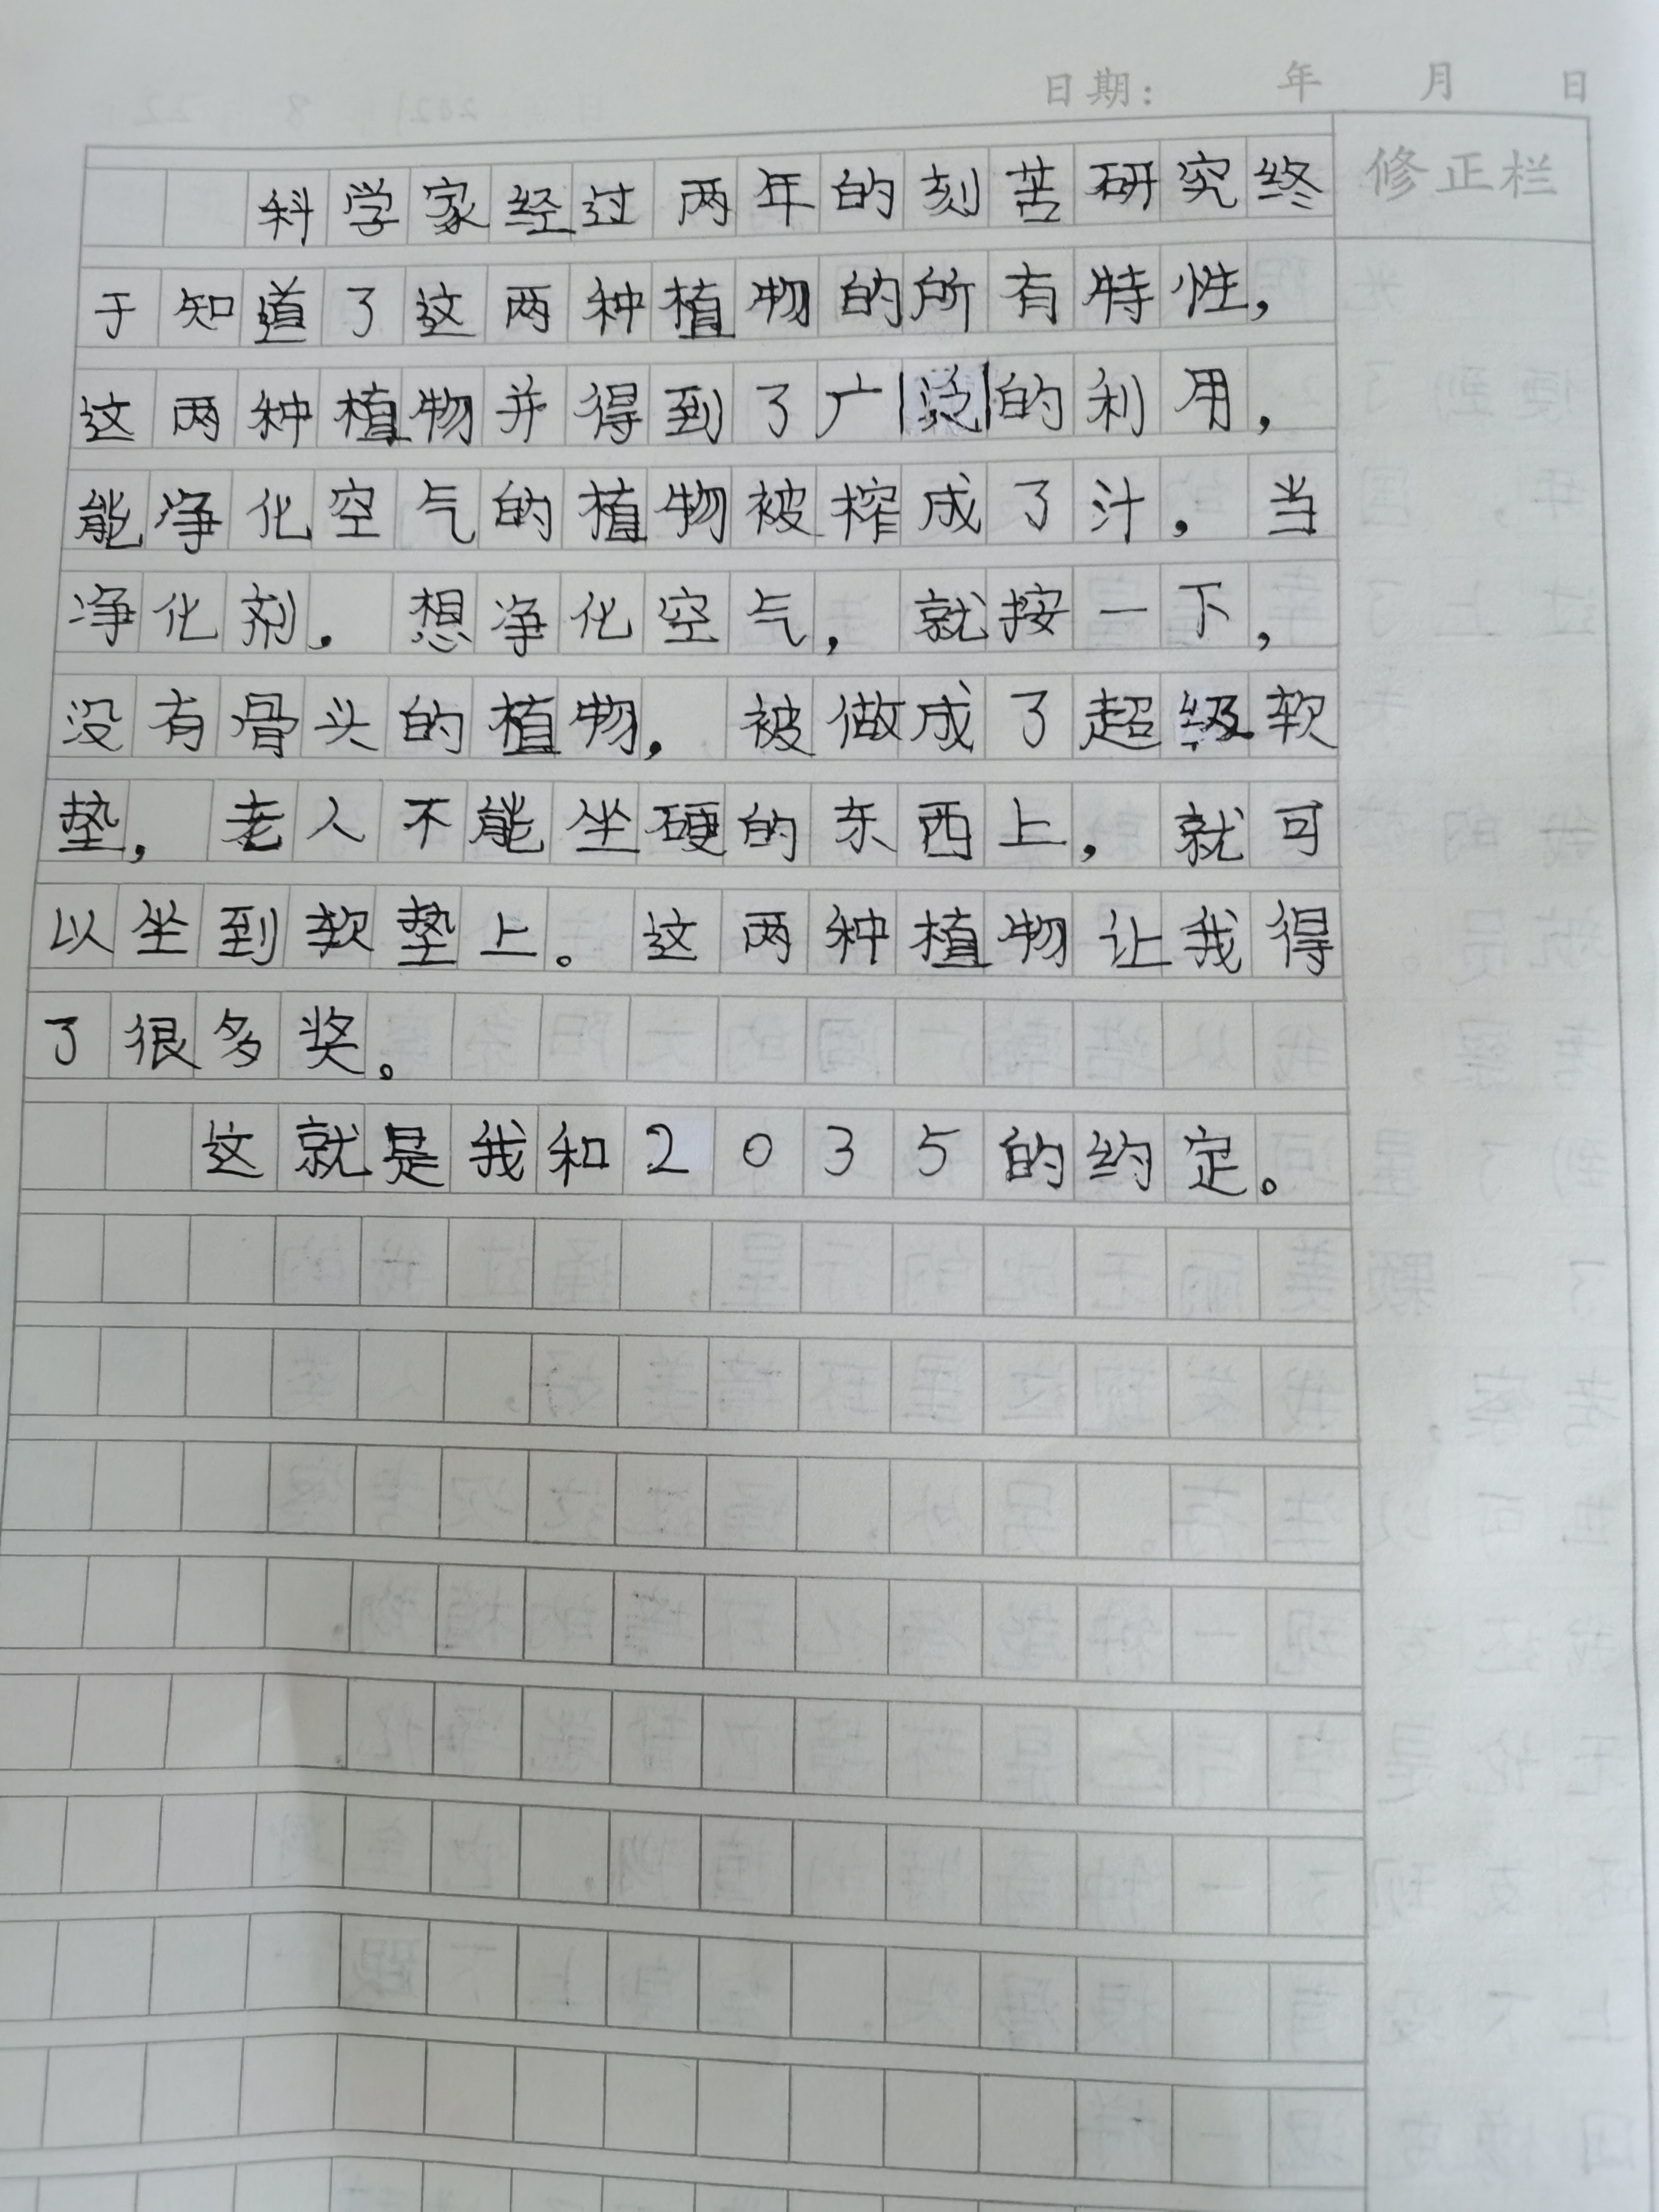 日期： 年 月 日
修正栏
科学家经过两年的刻苦研究终
于知道了这两种植物的所有特性，
这两种植物并得到了广泛的利用，
能净化空气的植物被榨成了汁，当
净化剂，想净化空气，就按一下，
没有骨头的植物，被做成了超级软
垫，老人不能坐硬的东西上，就可
以坐到软垫上。这两种植物让我得
了很多奖。
这就是我和2035的约定。